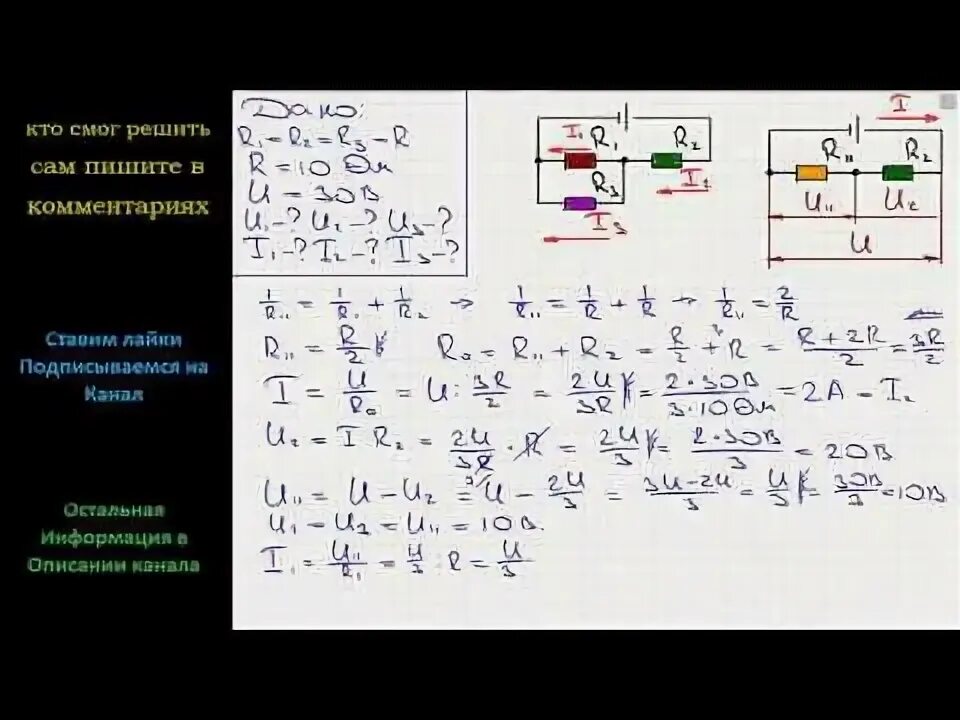 кто смог решить
сам пишите в
комментариях
Ставим лайки
Подписываемся на
Канал
Остальная
Информация в
Описании канала
Дано:
R₁ = R₂ = R₃ = R
R = 10 Ом
U = 30В
U₁-? U₂-? U₃-?
I₁-? I₂-? I₃-?
I₁ R₁ R₂
R₃ I₂
I₃
I
R₁₁ R₂
U₁₁ U₂
U
1/R₁₁ = 1/R₁ + 1/R₂ → 1/R₁₁ = 1/R + 1/R → 1/R₁₁ = 2/R
R₁₁ = R/2 R₀ = R₁₁ + R₂ = R/2 + R = R + 2R/2 = 3R/2
I = U/R₀ = U : 3R/2 = 2U/3R = 2·30В/3·10Ом = 2А = I₂
U₂ = I R₂ = 2U/3R · R = 2U/3 = 2·30В/3 = 20В
U₁₁ = U - U₂ = U - 2U/3 = 3U-2U/3 = U/3 = 30В/3 = 10В
U₁ = U₃ = U₁₁ = 10В.
I₁ = U₁₁/R₁ = U/3 : R = U/3